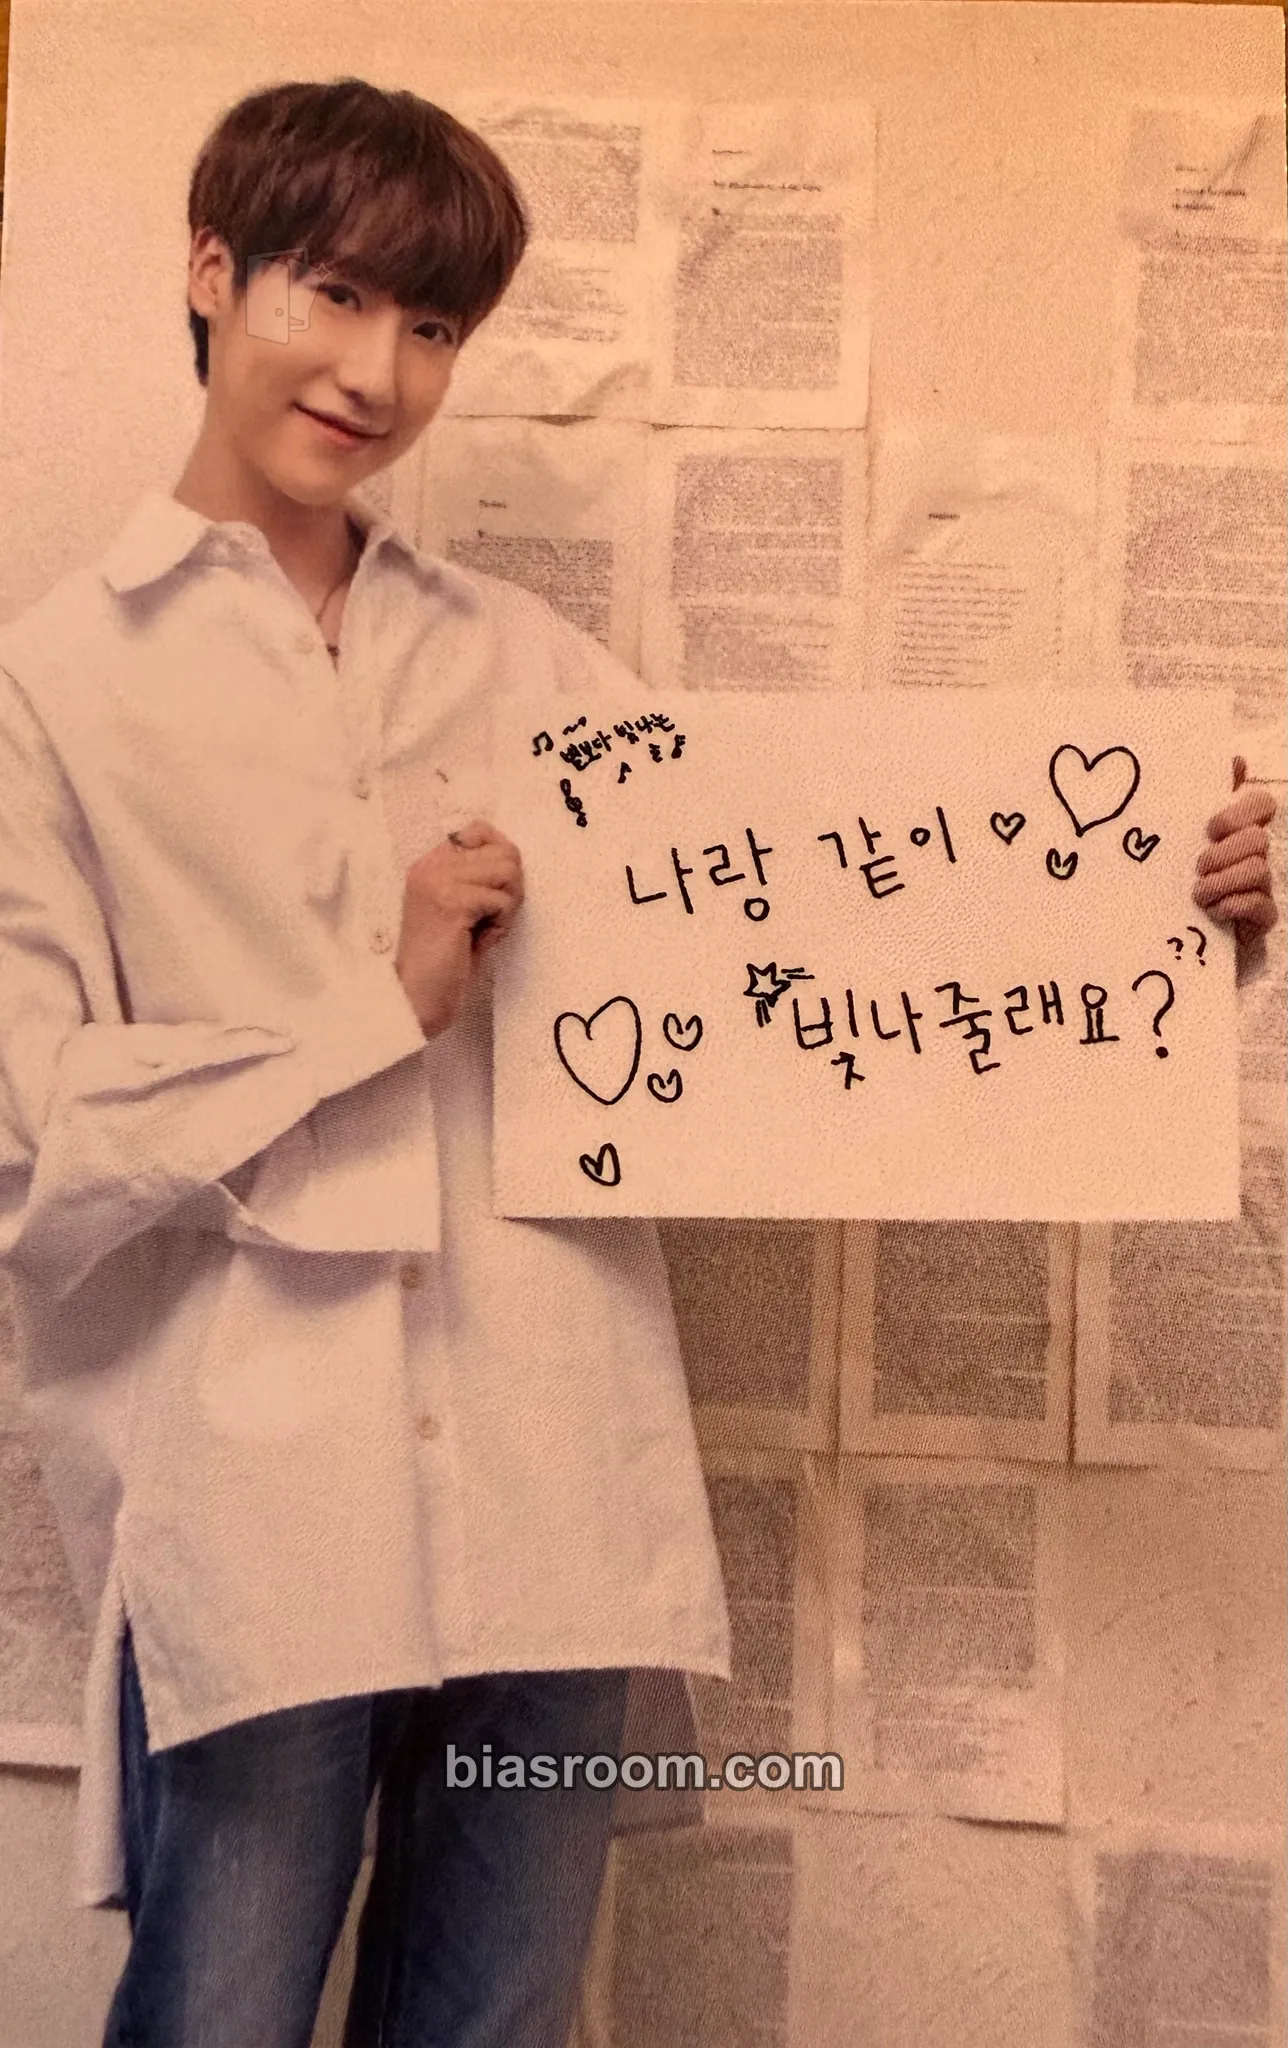 별보다 빛나는
나랑 같이
빛나줄래요?
??
biasroom.com